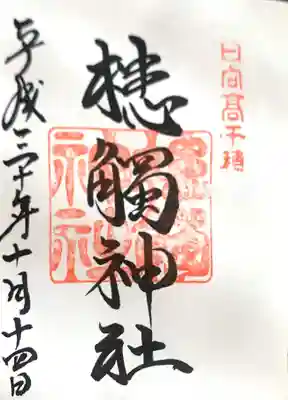 日向高千穂
槵觸神社
平成三十年十月十四日